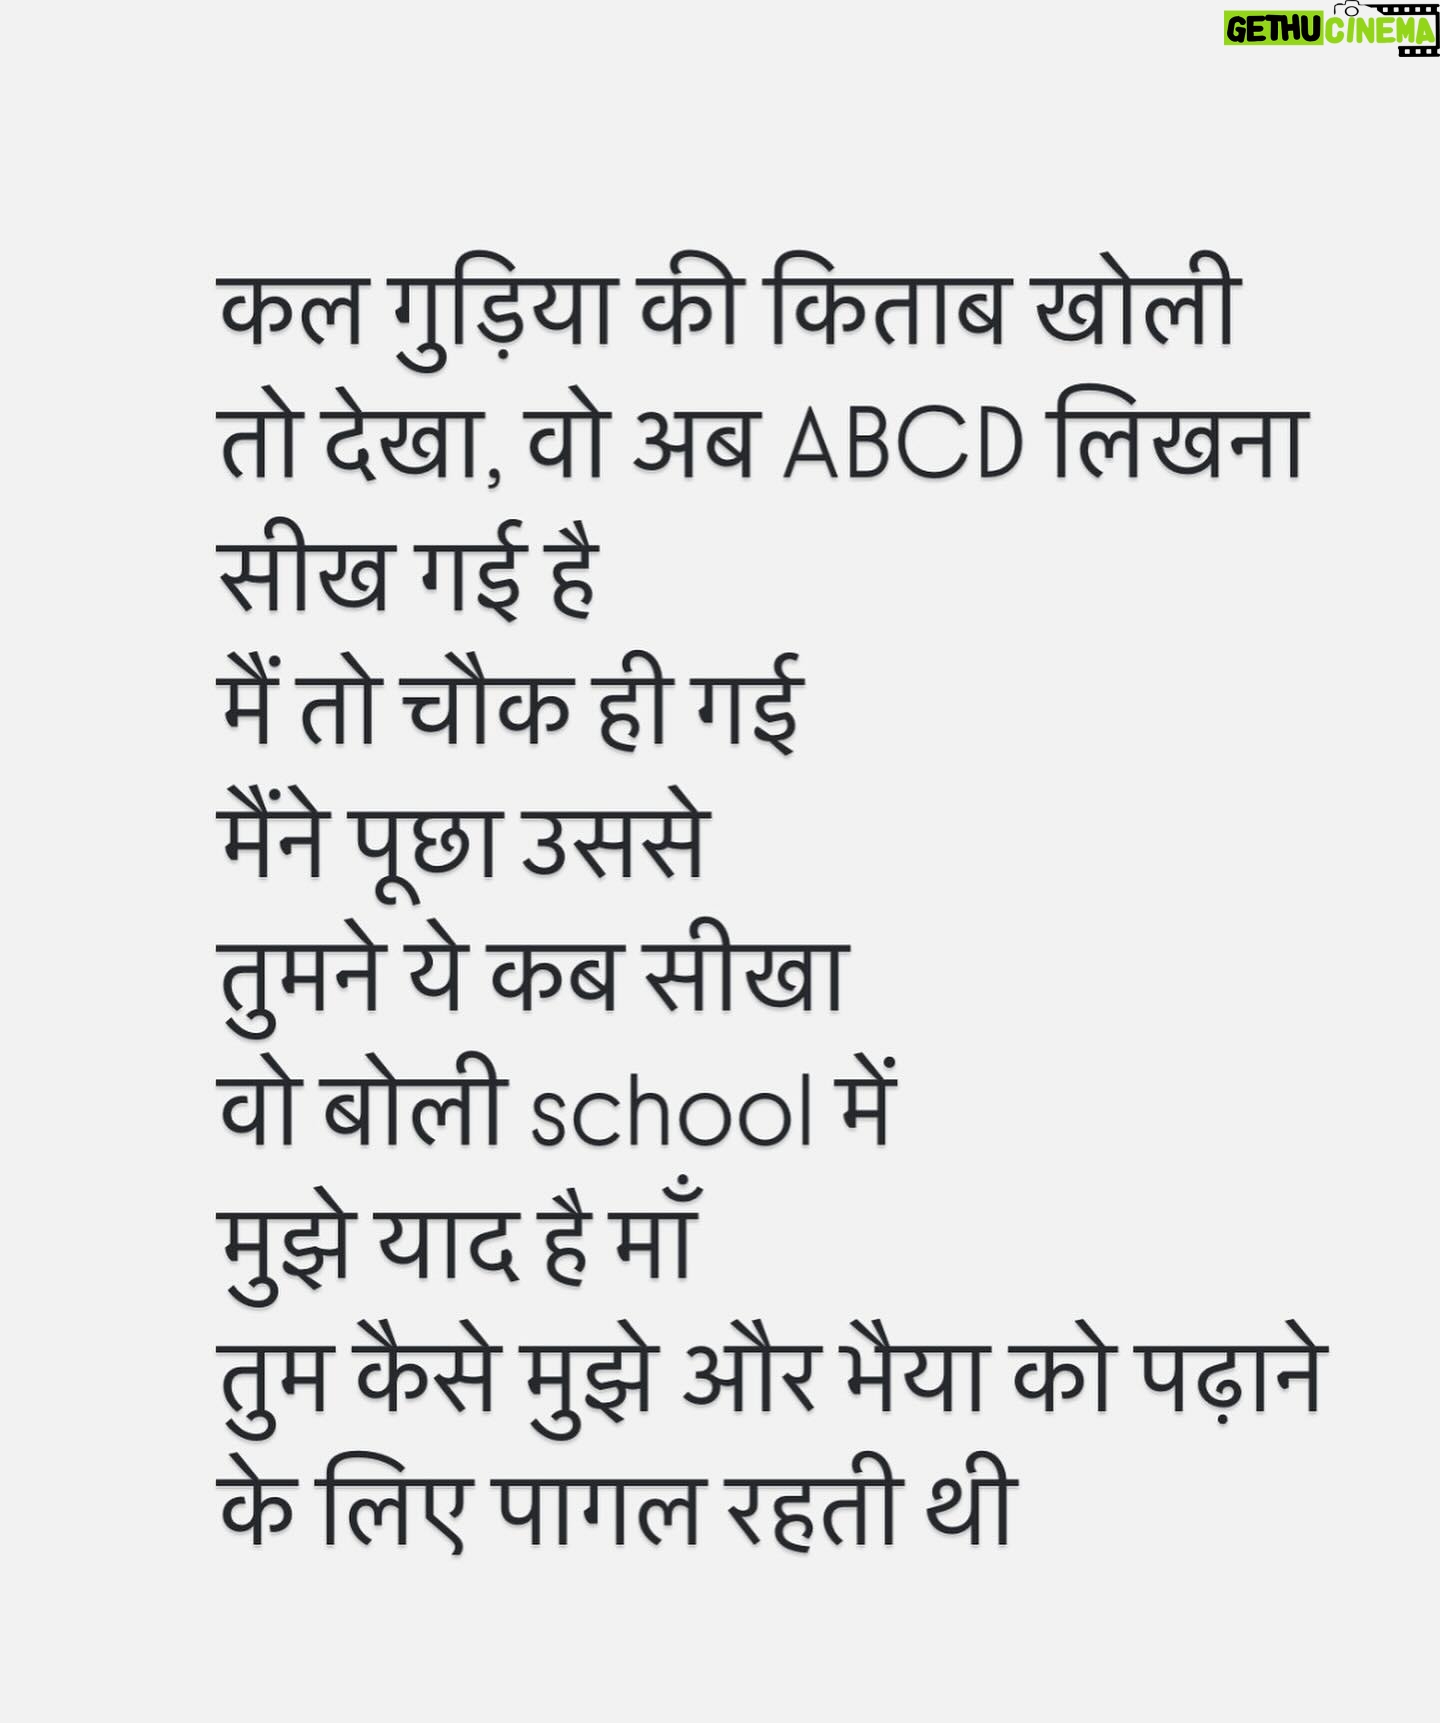 GETHU CINEMA
कल गुड़िया की किताब खोली
तो देखा, वो अब ABCD लिखना
सीख गई है
मैं तो चौक ही गई
मैंने पूछा उससे
तुमने ये कब सीखा
वो बोली school में
मुझे याद है माँ
तुम कैसे मुझे और भैया को पढ़ाने
के लिए पागल रहती थी